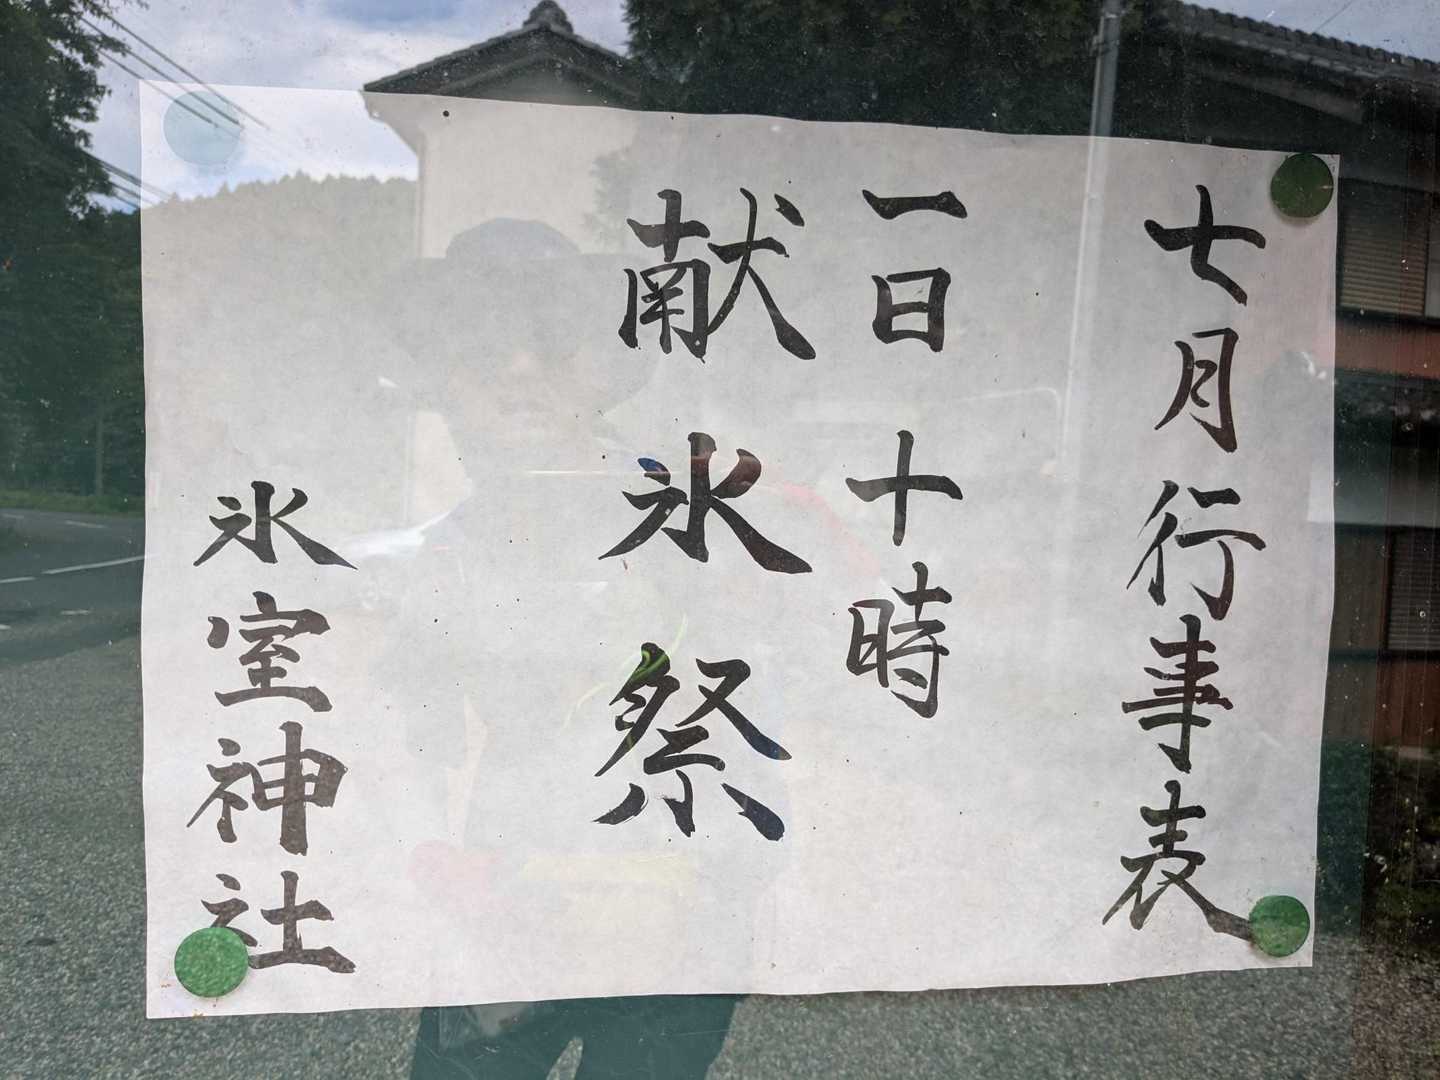 七月行事表
一日十時
献氷祭
氷室神社